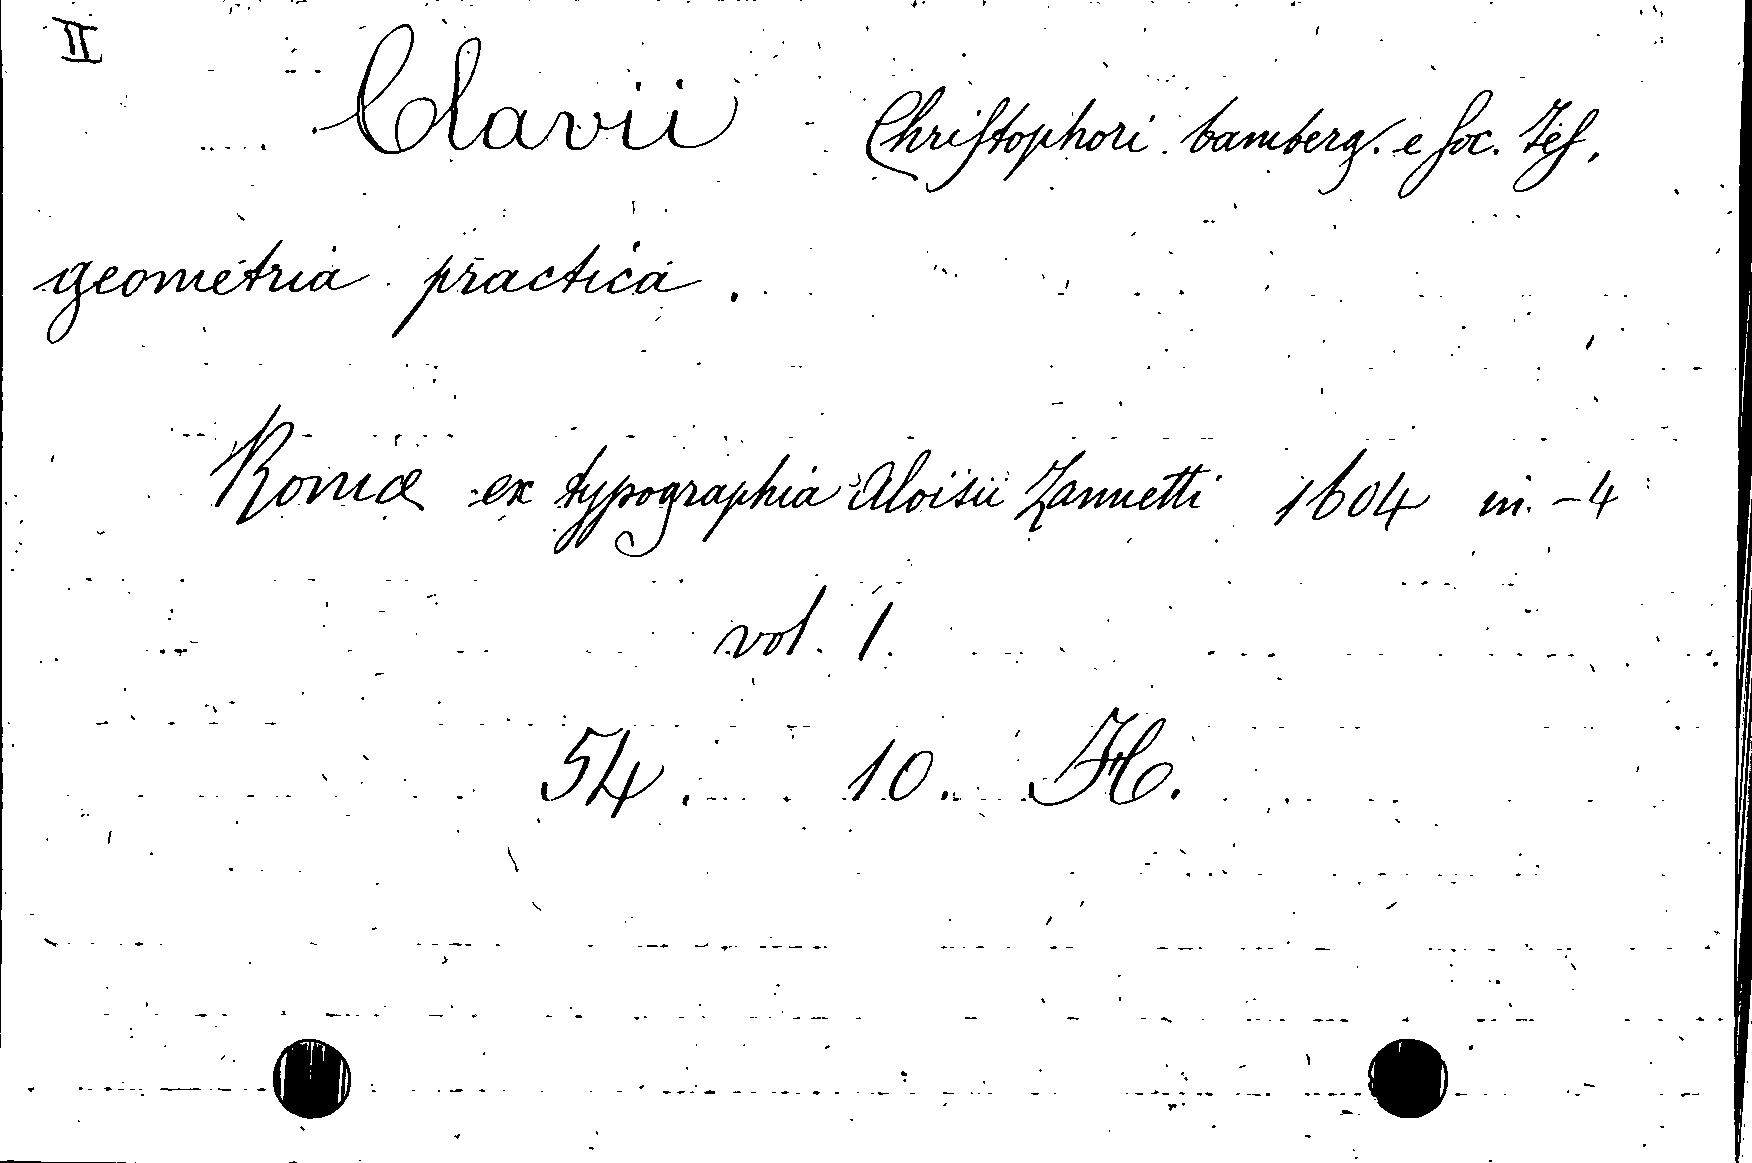 II
Clavii Christophori bamberg. e soc. Jes.
geometria practica.
Romæ ex typographia Aloisii Zannetti 1604 in-4
vol. 1.
54. 10. H.